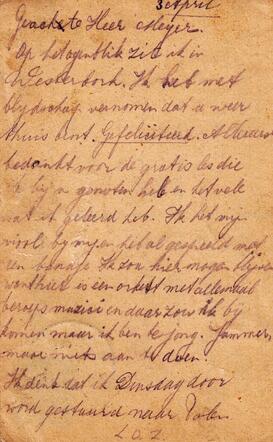 3 April
Geachte Heer Meyer.
Op het ogenblik zit ik in
Westerbork. Ik heb met
blydschap vernomen dat u weer
thuis bent. Gefeliciteerd. Alleen
bedankt voor de gratis les die
ik by u genoten heb en het vele
wat ik geleerd heb. Ik heb myn
viool by my en heb al gespeeld met
een banajo. Ik zou hier mogen blyven
want hier is een orkest met allemaal
beroeps muzici en daar zou ik by
komen maar ik ben te jong. Jammer,
maar niets aan te doen
Ik denk dat ik Dinsdag door
word gestuurd naar Polen
L.O.Z.